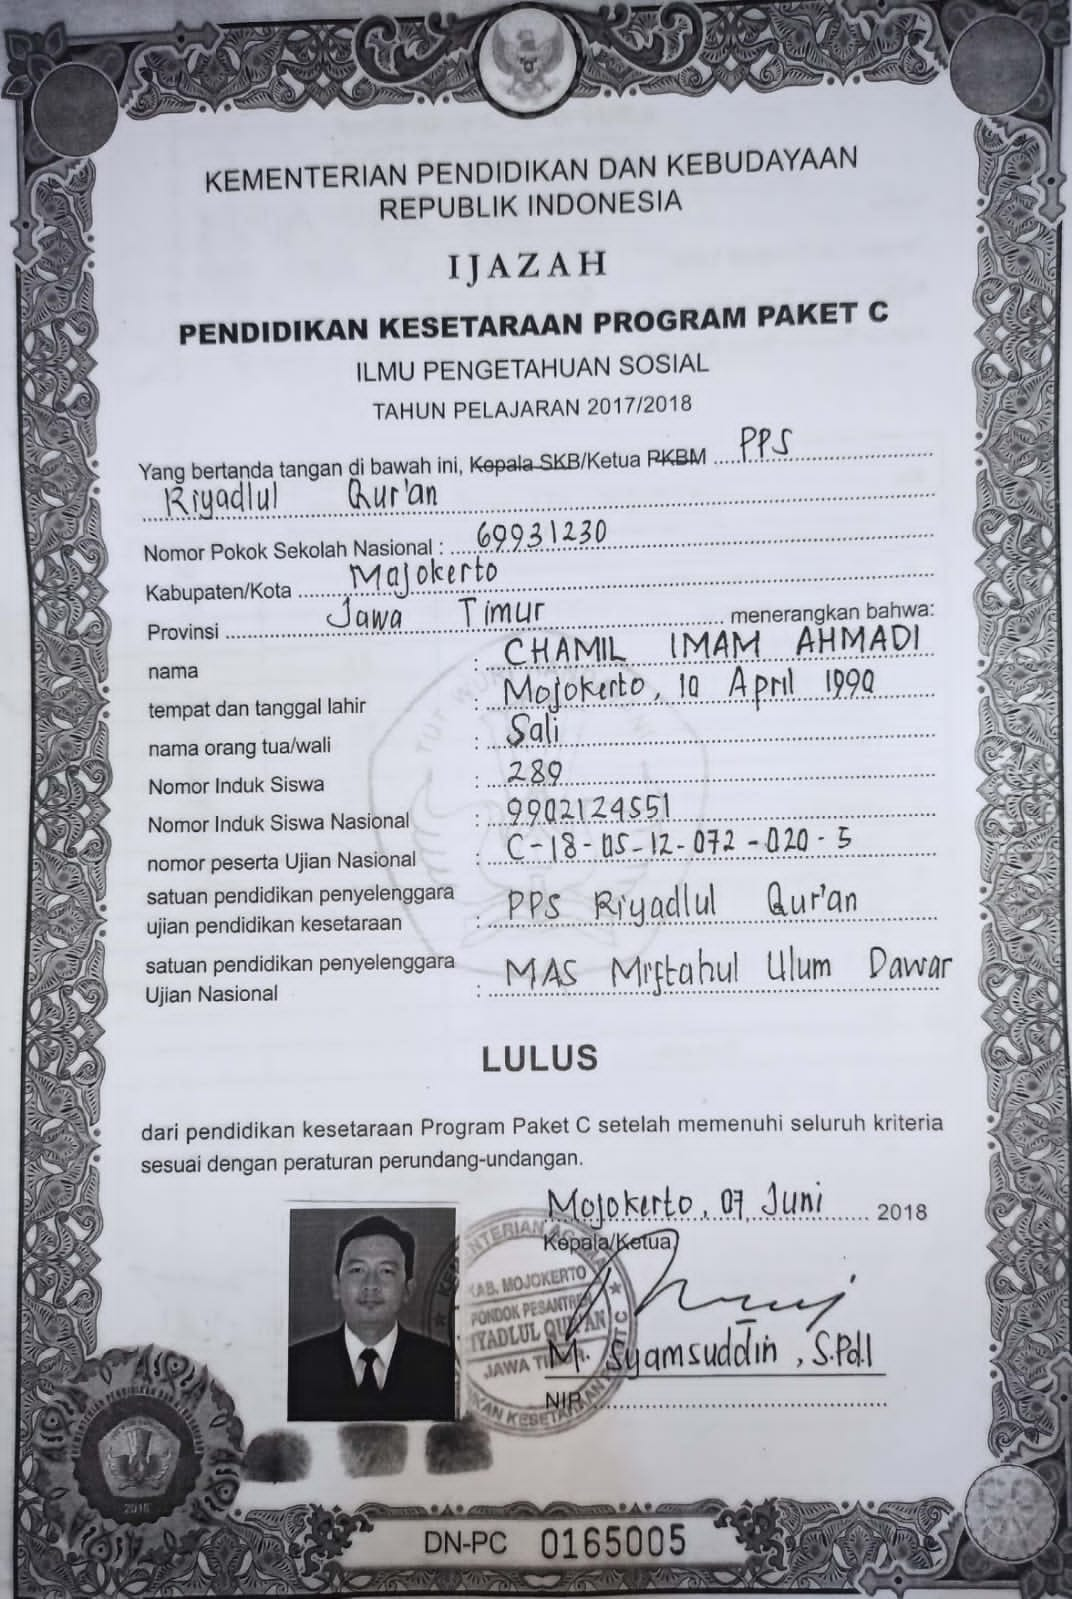 KEMENTERIAN PENDIDIKAN DAN KEBUDAYAAN
REPUBLIK INDONESIA
IJAZAH
PENDIDIKAN KESETARAAN PROGRAM PAKET C
ILMU PENGETAHUAN SOSIAL
TAHUN PELAJARAN 2017/2018
Yang bertanda tangan di bawah ini, Kepala SKB/Ketua PKBM PPS
Riyadlul Qur'an
Nomor Pokok Sekolah Nasional : 69931230
Kabupaten/Kota Mojokerto
Provinsi Jawa Timur menerangkan bahwa:
nama : CHAMIL IMAM AHMADI
tempat dan tanggal lahir : Mojokerto, 10 April 1990
nama orang tua/wali : Sali
Nomor Induk Siswa : 289
Nomor Induk Siswa Nasional : 9902124551
nomor peserta Ujian Nasional : C-18-05-12-072-020-5
satuan pendidikan penyelenggara
ujian pendidikan kesetaraan : PPS Riyadlul Qur'an
satuan pendidikan penyelenggara
Ujian Nasional : MAS Miftahul Ulum Dawar
LULUS
dari pendidikan kesetaraan Program Paket C setelah memenuhi seluruh kriteria
sesuai dengan peraturan perundang-undangan.
Mojokerto, 07 Juni 2018
Kepala/Ketua
KAB. MOJOKERTO
PONDOK PESANTREN
RIYADLUL QUR'AN
JAWA TIMUR
M. Syamsuddin, S.Pd.I
NIP
DN-PC 0165005